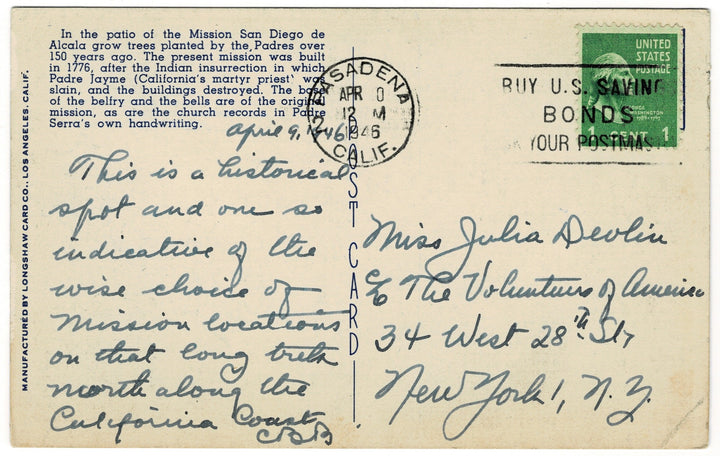 In the patio of the Mission San Diego de
Alcala grow trees planted by the Padres over
150 years ago. The present mission was built
in 1776, after the Indian insurrection in which
Padre Jayme (California's martyr priest)
slain, and the buildings destroyed. The
of the belfry and the bells are of the
mission, as are the church records in Padre
Serra's own handwriting.
MANUFACTURED BY LONGSHAW CARD CO., LOS ANGELES, CALIF.
April 9, 1946
This is a historical
spot and one so
indicative of the
wise choice of
Mission locations
on that long trek
north along the
California Coast
CBB
POST CARD
PASADENA
APR
12 M
1946
CALIF.
BUY U.S. SAVING
BONDS
YOUR POSTMAS
UNITED
STATES
POSTAGE
WASHINGTON
1 CENT 1
Miss Julia Devlin
The Volunteers of America
34 West 28th St,
New York 1, N.Y.